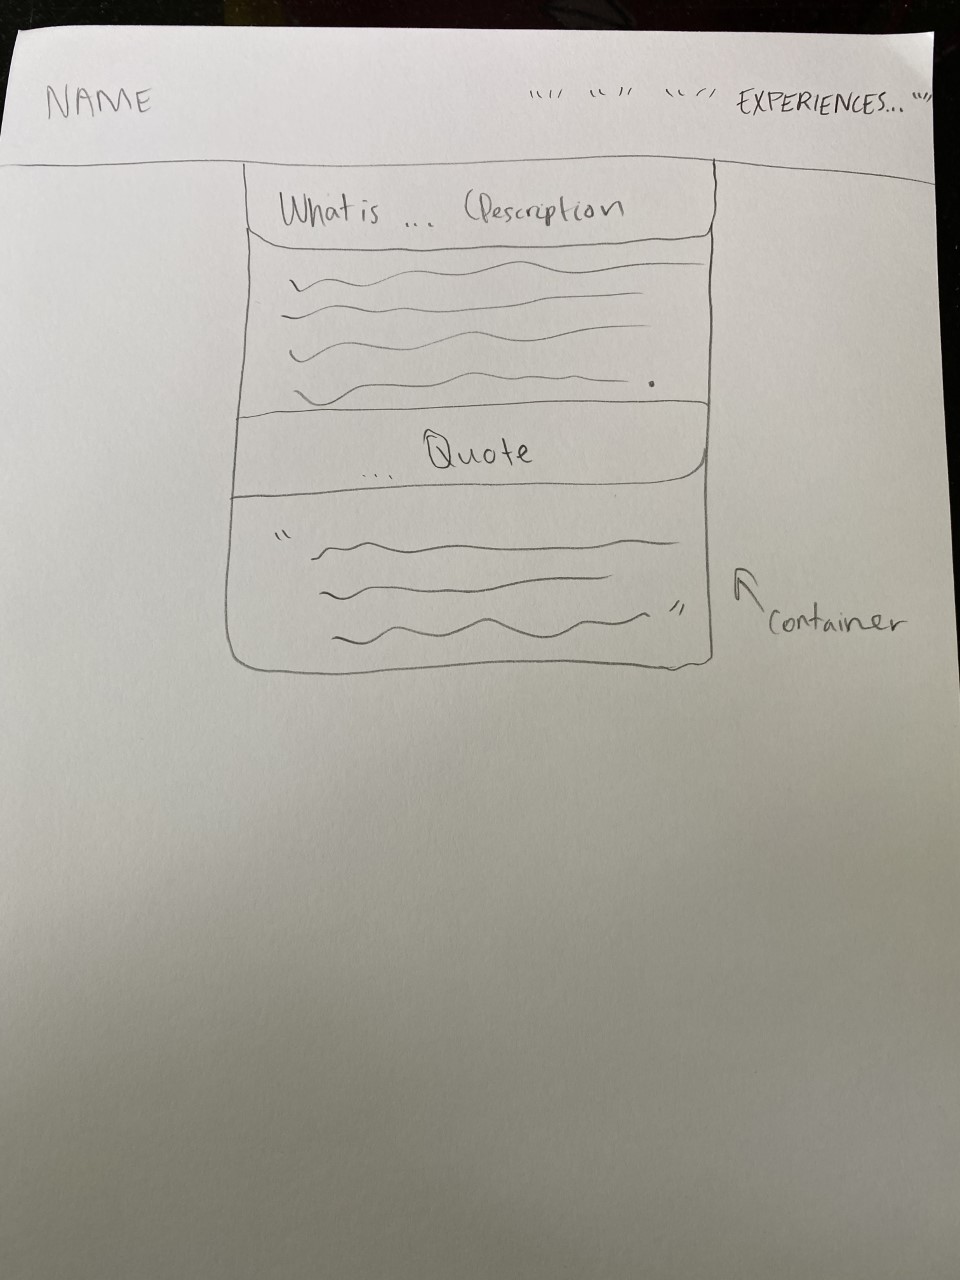 NAME "" "" " " " " EXPERIENCES... ""
What is ... (Description
... Quote
"
"
container